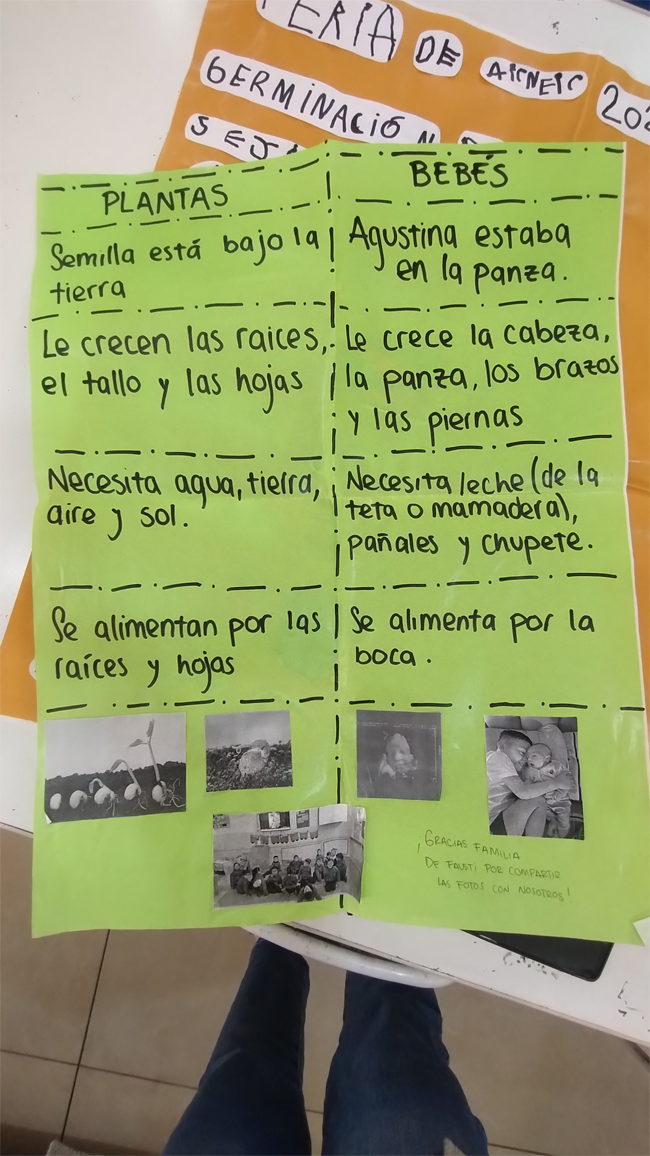 FERIA DE 
GERMINACIÓN
PLANTAS
BEBÉS
Semilla está bajo la
tierra
Agustina estaba
en la panza.
Le crecen las raices,
el tallo y las hojas
Le crece la cabeza,
la panza, los brazos
y las piernas
Necesita agua, tierra,
aire y sol.
Necesita leche (de la
teta o mamadera),
pañales y chupete.
Se alimentan por las
raíces y hojas
Se alimenta por la
boca.
¡GRACIAS FAMILIA
DE FAUSTI POR COMPARTIR
LAS FOTOS CON NOSOTROS!